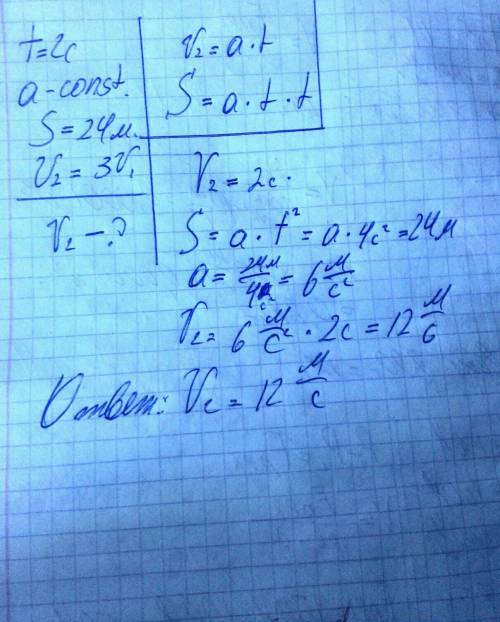 t=2с
a-const.
S=24м.
V₂=3V₁
V₂-?
V₂=a·t
S=a·t·t
V₂=2с·
S=a·t²=a·4с²=24м
a=24м/4с²=6м/с²
V₂=6м/с²·2с=12м/с
Ответ: Vс=12м/с